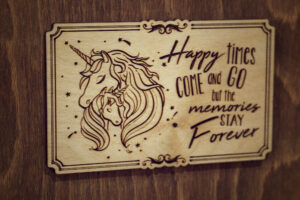 Happy times
COME and GO
but the
memories
STAY
Forever